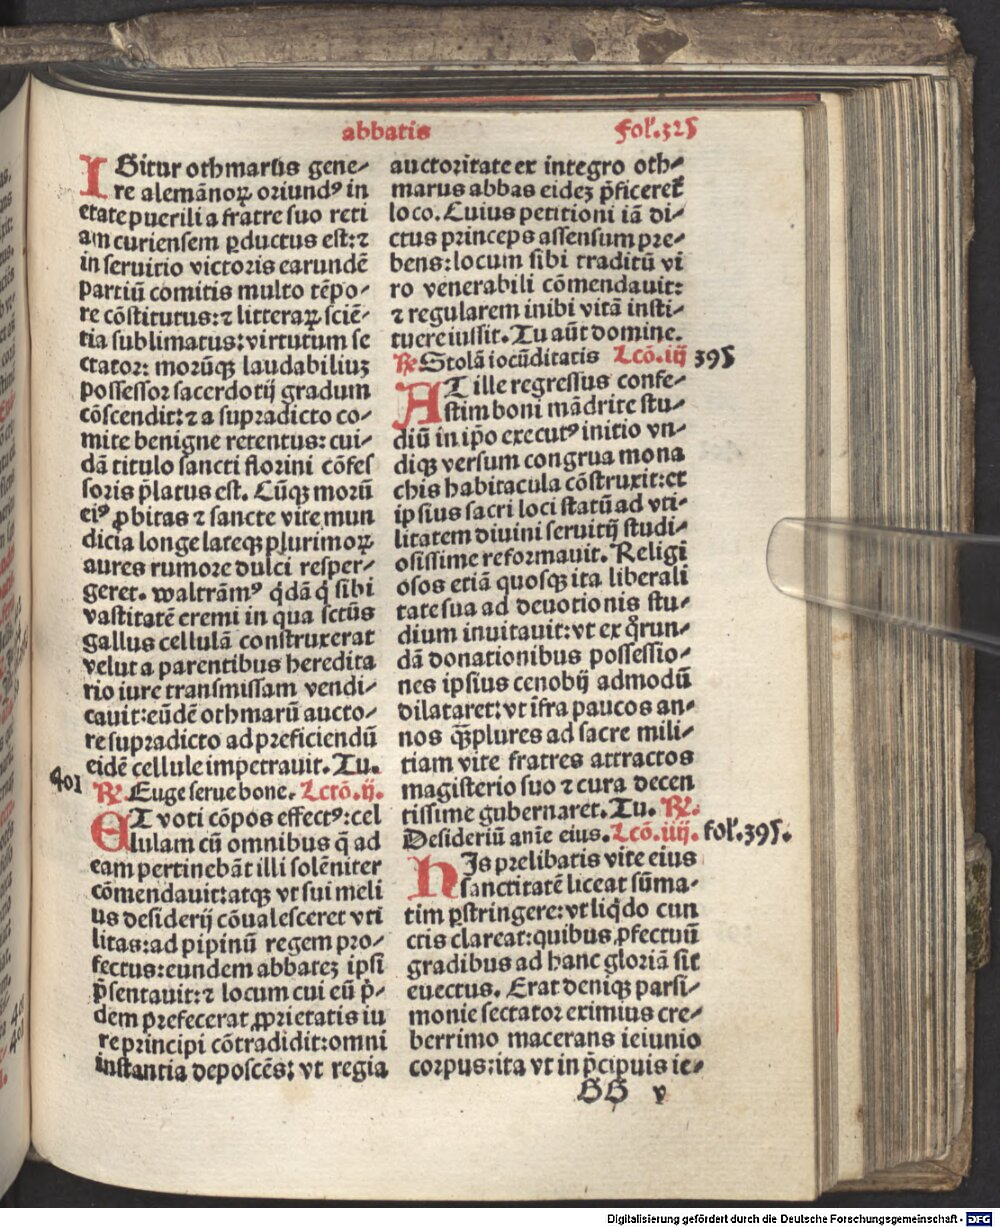 abbatis
fol.325
IGitur othmarus gene⸗
re alemānoꝝ oriundꝰ in
etate puerili a fratre suo reti
am curiensem ꝑductus est: ⁊
in seruitio victoris earundē
partiū comitis multo tēpo⸗
re cōstitutus: ⁊ litteraꝝ sciē⸗
tia sublimatus: virtutum se
ctator: morūqꝫ laudabiliuꝫ
possessor sacerdotij gradum
cōscendit: ⁊ a supradicto co⸗
mite benigne retentus: cui⸗
dā titulo sancti florini cōfes
soris p̄latus est. Cūqꝫ morū
eiꝰ ꝓbitas ⁊ sancte vite mun
dicia longe lateqꝫ plurimoꝝ
aures rumore dulci resper⸗
geret. waltrāmꝰ q̇dā q̇ sibi
vastitatē eremi in qua sctūs
gallus cellulā construxerat
velut a parentibus heredita
rio iure transmissam vendi⸗
cauit: eūdē othmarū aucto⸗
re supradicto ad preficiendū
eidē cellule impetrauit. Tu.
401
℟ Euge serue bone. Lctō.ij.
ET voti cōpos effectꝰ: cel
lulam cū omnibus q̄ ad
eam pertinebāt illi solēniter
cōmendauit: atqꝫ vt sui meli
us desiderij cōualesceret vti
litas: ad pipinū regem pro⸗
fectus: eundem abbateꝫ ipsi
p̄sentauit: ⁊ locum cui eū p̄⸗
dem prefecerat ꝓprietatis iu
re principi cōtradidit: omni
instantia deposcēs: vt regia
auctoritate ex integro oth⸗
marus abbas eideꝫ p̄ficeret̄
loco. Cuius petitioni iā di⸗
ctus princeps assensum pre⸗
bens: locum sibi traditū vi
ro venerabili cōmendauit:
⁊ regularem inibi vitā insti⸗
tuere iussit. Tu aūt domine.
℟ Stolā iocūditatis Lcō.iij 395
AT ille regressus confe⸗
stim boni mādrite stu⸗
diū in ip̄o executꝰ initio vn⸗
diqꝫ versum congrua mona
chis habitacula cōstruxit: et
ipsius sacri loci statū ad vti⸗
litatem diuini seruitij studi⸗
osissime reformauit. Religi
osos etiā quosqꝫ ita liberali
tate sua ad deuotionis stu⸗
dium inuitauit: vt ex q̄run⸗
dā donationibus possessio⸗
nes ipsius cenobij admodū
dilataret: vt īfra paucos an⸗
nos q̄ꝫplures ad sacre mili⸗
tiam vite fratres attractos
magisterio suo ⁊ cura decen
tissime gubernaret. Tu. ℟.
Desideriū anīe eius. Lcō.iiij. fol.395.
HIs prelibatis vite eius
sanctitatē liceat sūma⸗
tim ꝑstringere: vt liq̇do cun
ctis clareat: quibus ꝓfectuū
gradibus ad hanc gloriā sit
euectus. Erat deniqꝫ parsi⸗
monie sectator eximius cre⸗
berrimo macerans ieiunio
corpus: ita vt in p̄cipuis ie⸗
GG v
Digitalisierung gefördert durch die Deutsche Forschungsgemeinschaft - DFG